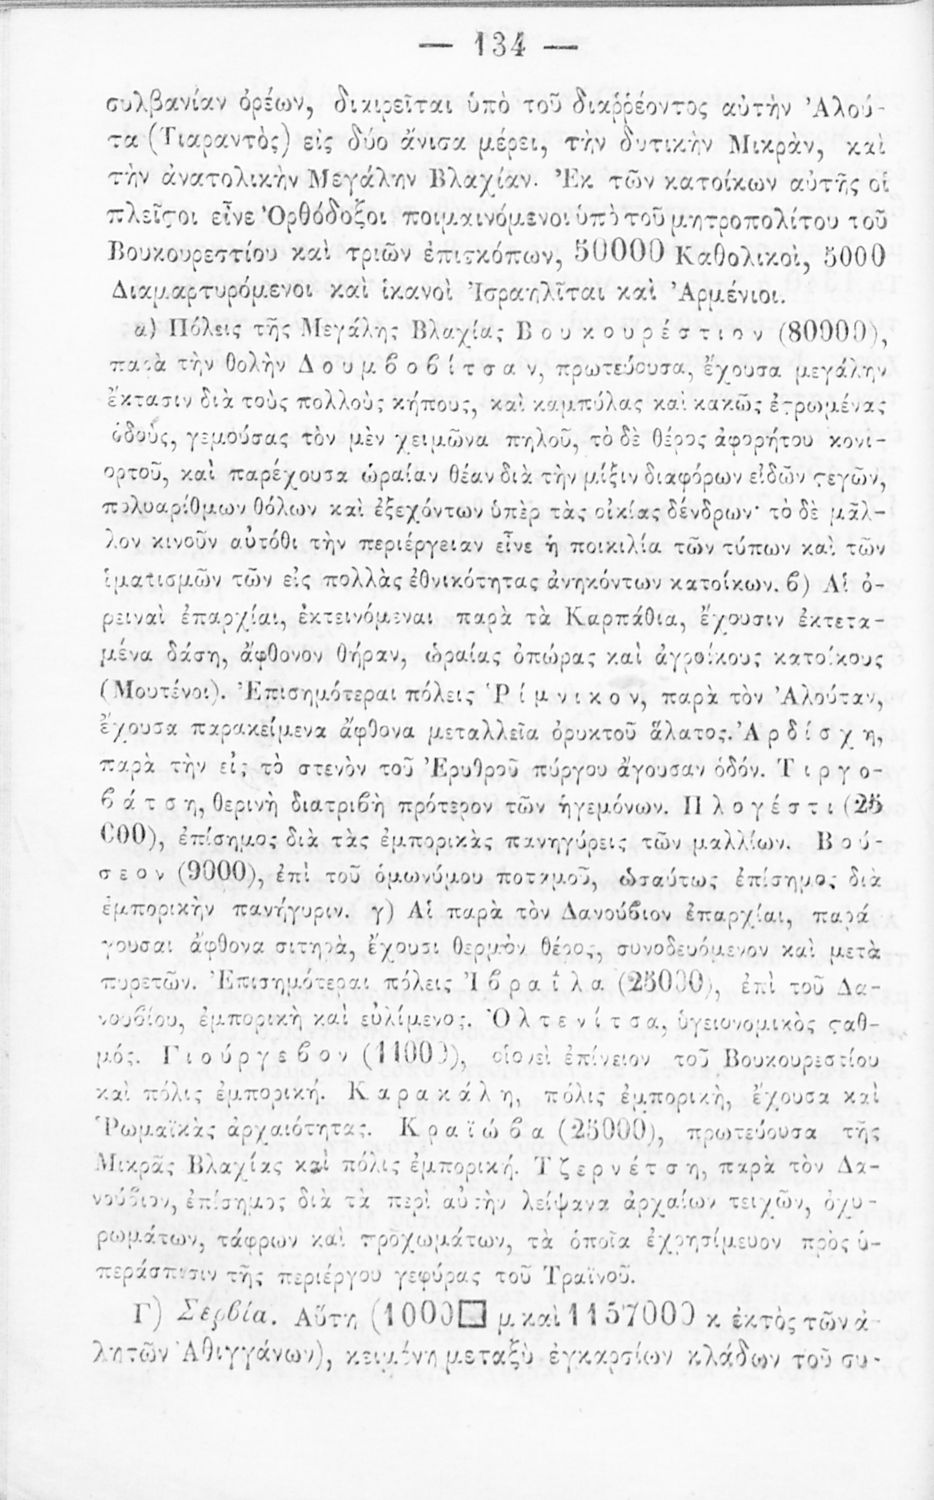 — 134 —
συλβανίαν ὀρέων, διαιρεῖται ὑπὸ τοῦ διαῤῥέοντος αὐτὴν Ἀλού-
τα (Τιαραντὸς) εἰς δύο ἄνισα μέρει, τὴν δυτικὴν Μικρὰν, καὶ
τὴν ἀνατολικὴν Μεγάλην Βλαχίαν. Ἐκ τῶν κατοίκων αὐτῆς οἱ
πλεῖϛοι εἶνε Ὀρθόδοξοι ποιμαινόμενοι ὑπὸ τοῦ μητροπολίτου τοῦ
Βουκουρεστίου καὶ τριῶν ἐπισκόπων, 50000 Καθολικοὶ, 5000
Διαμαρτυρόμενοι καὶ ἱκανοὶ Ἰσραηλῖται καὶ Ἀρμένιοι.
α) Πόλεις τῆς Μεγάλης Βλαχίας Βουκουρέστιον (80000),
παρὰ τὴν θολὴν Δουμβοβίτσαν, πρωτεύουσα, ἔχουσα μεγάλην
ἔκτασιν διὰ τοὺς πολλοὺς κήπους, καὶ καμπύλας καὶ κακῶς ἐϛρωμένας
ὁδοὺς, γεμούσας τὸν μὲν χειμῶνα πηλοῦ, τὸ δὲ θέρος ἀφορήτου κονι-
ορτοῦ, καὶ παρέχουσα ὡραίαν θέαν διὰ τὴν μίξιν διαφόρων εἰδῶν ϛεγῶν,
πολυαρίθμων θόλων καὶ ἐξεχόντων ὑπὲρ τὰς οἰκίας δένδρων· τὸ δὲ μᾶλ-
λον κινοῦν αὐτόθι τὴν περιέργειαν εἶνε ἡ ποικιλία τῶν τύπων καὶ τῶν
ἱματισμῶν τῶν εἰς πολλὰς ἐθνικότητας ἀνηκόντων κατοίκων. β) Αἱ ὀ-
ρειναὶ ἐπαρχίαι, ἐκτεινόμεναι παρὰ τὰ Καρπάθια, ἔχουσιν ἐκτετα-
μένα δάση, ἄφθονον θήραν, ὡραίας ὀπώρας καὶ ἀγροίκους κατοίκους
(Μουτένοι). Ἐπισημότεραι πόλεις Ῥίμνικον, παρὰ τὸν Ἀλούταν,
ἔχουσα παρακείμενα ἄφθονα μεταλλεῖα ὀρυκτοῦ ἅλατος. Ἀρδίσχη,
παρὰ τὴν εἰς τὸ στενὸν τοῦ Ἐρυθροῦ πύργου ἄγουσαν ὁδόν. Τιργο-
βάτση, θερινὴ διατριβὴ πρότερον τῶν ἡγεμόνων. Πλογέστι (25
000), ἐπίσημος διὰ τὰς ἐμπορικὰς πανηγύρεις τῶν μαλλίων. Βού-
σεον (9000), ἐπὶ τοῦ ὁμωνύμου ποταμοῦ, ὡσαύτως ἐπίσημος διὰ
ἐμπορικὴν πανήγυριν. γ) Αἱ παρὰ τὸν Δανούβιον ἐπαρχίαι, παρά
γουσαι ἄφθονα σιτηρὰ, ἔχουσι θερμὸν θέρος, συνοδευόμενον καὶ μετὰ
πυρετῶν. Ἐπισημότεραι πόλεις Ἰβραΐλα (25000), ἐπὶ τοῦ Δα-
νουβίου, ἐμπορικὴ καὶ εὐλίμενος. Ὀλτενίτσα, ὑγειονομικὸς ϛαθ-
μός. Γιούργεβον (11000), οἱονεὶ ἐπίνειον τοῦ Βουκουρεστίου
καὶ πόλις ἐμπορική. Καρακάλη, πόλις ἐμπορικὴ, ἔχουσα καὶ
Ῥωμαϊκὰς ἀρχαιότητας. Κραϊώβα (25000), πρωτεύουσα τῆς
Μικρᾶς Βλαχίας καὶ πόλις ἐμπορική. Τζερνέτση, παρὰ τὸν Δα-
νούβιον, ἐπίσημος διὰ τὰ περὶ αὐτὴν λείψανα ἀρχαίων τειχῶν, ὀχυ-
ρωμάτων, τάφρων καὶ προχωμάτων, τὰ ὁποῖα ἐχρησίμευον πρὸς ὑ-
περάσπισιν τῆς περιέργου γεφύρας τοῦ Τραϊνοῦ.
Γ) Σερβία. Αὕτη (1000□ μ καὶ 1157000 κ ἐκτὸς τῶν ἀ
λητῶν Ἀθιγγάνων), κειμένη μεταξὺ ἐγκαρσίων κλάδων τοῦ συ-